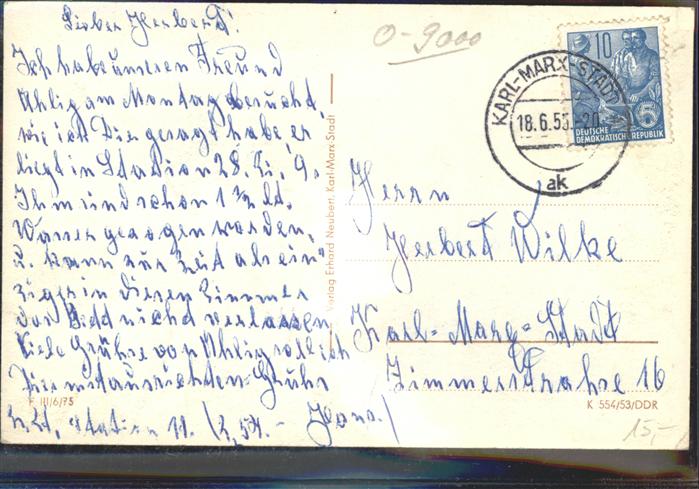 Lieber Herbert!
Ich habe unseren Freund
Uhlig am Montag besucht,
wie ich Dir gesagt habe, er
liegt in Station 28. Zi. 9.
Ihm sind schon 1 ½ Lt.
Wasser gezogen worden,
u. kann zur Zeit als ein-
ziger in diesen Zimmer
das Bedd nicht verlassen
Viele Grühse von Uhlig soll ich
Dir mit ausrichten. Gruhs
Station 11. Hans.
F III/6/75
Verlag Erhard Neubert, Karl-Marx-Stadt
0-9000
10
5
DEUTSCHE
DEMOKRATISCHE REPUBLIK
KARL-MARX-STADT
18.6.55.-20
ak
Herrn
Herbert Wilke
Karl-Marx-Stadt
Zimmerstrahse 16
K 554/53/DDR
15,-